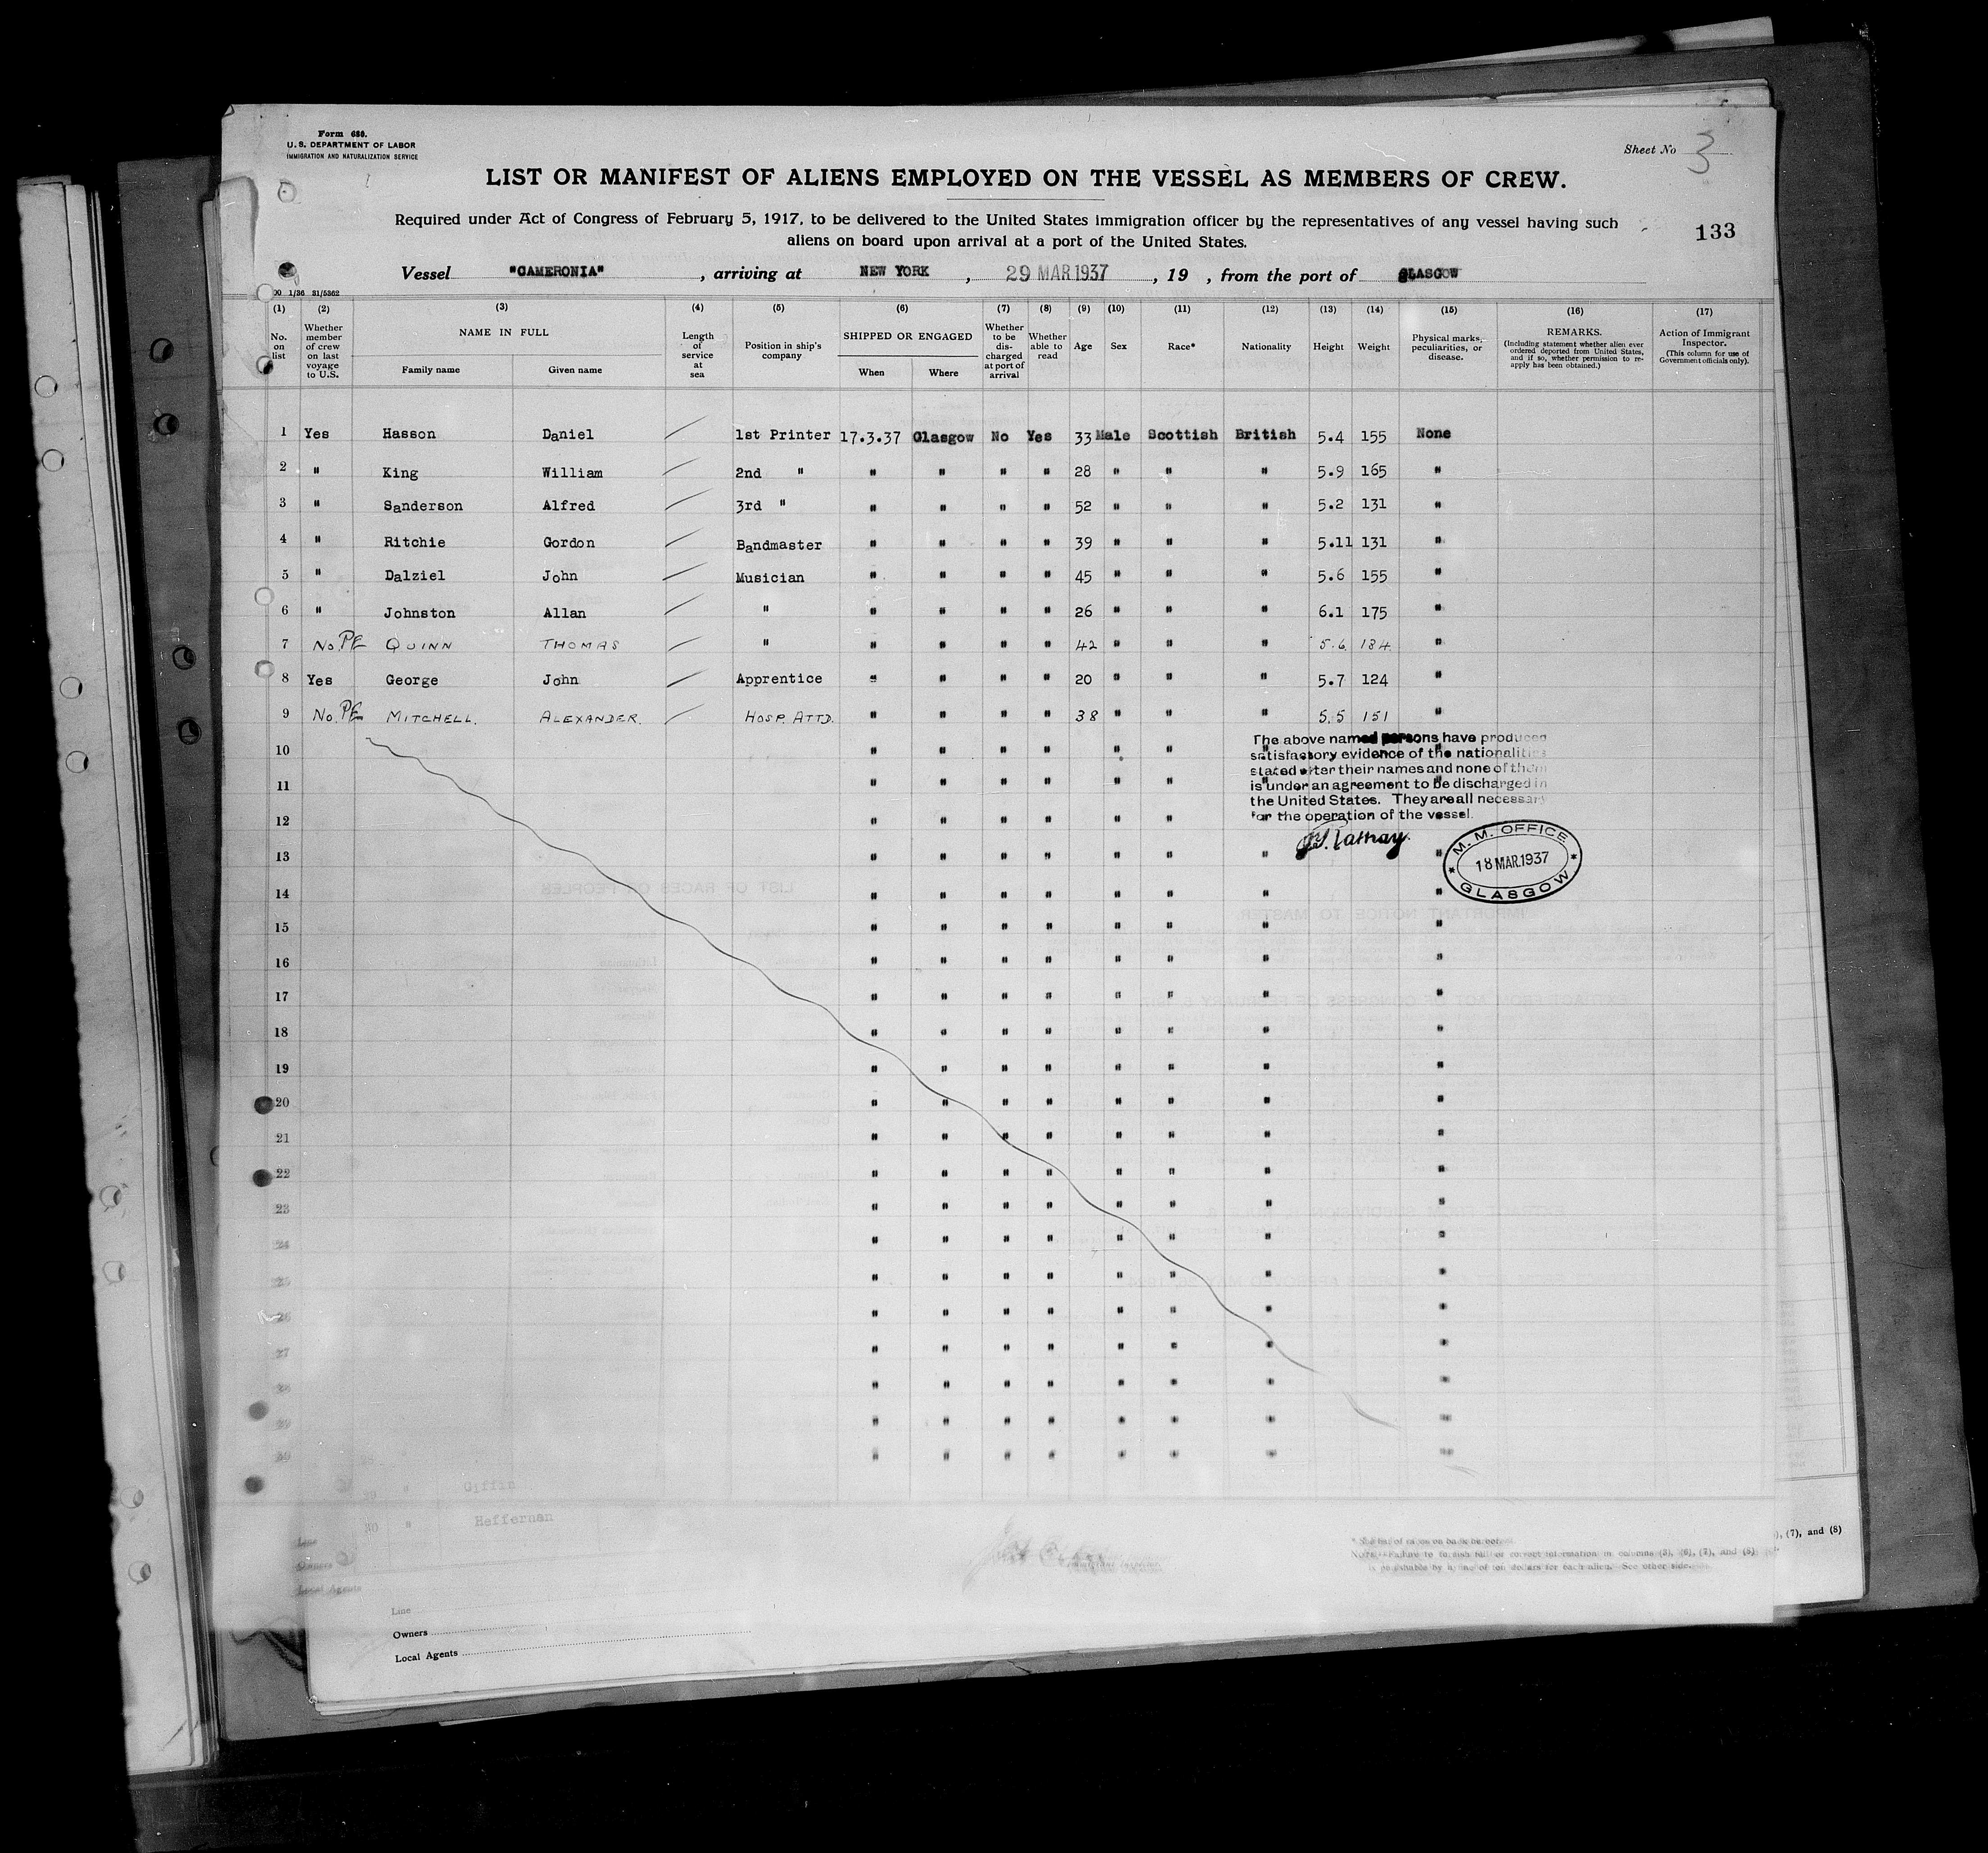 Form 680.
U. S. DEPARTMENT OF LABOR
IMMIGRATION AND NATURALIZATION SERVICE
Sheet No 3
LIST OR MANIFEST OF ALIENS EMPLOYED ON THE VESSEL AS MEMBERS OF CREW.
Required under Act of Congress of February 5, 1917, to be delivered to the United States immigration officer by the representatives of any vessel having such
aliens on board upon arrival at a port of the United States.
133
Vessel "CAMERONIA", arriving at NEW YORK, 29 MAR 1937, 19 , from the port of GLASGOW
00 1/36 31/5362
(1) (2) (3) (4) (5) (6) (7) (8) (9) (10) (11) (12) (13) (14) (15) (16) (17)
No. on list
Whether member of crew on last voyage to U.S.
NAME IN FULL
Family name
Given name
Length of service at sea
Position in ship's company
SHIPPED OR ENGAGED
When
Where
Whether to be discharged at port of arrival
Whether able to read
Age
Sex
Race*
Nationality
Height
Weight
Physical marks, peculiarities, or disease.
REMARKS.
(Including statement whether alien ever ordered deported from United States, and if so, whether permission to re-apply has been obtained.)
Action of Immigrant Inspector.
(This column for use of Government officials only).
1 Yes Hasson Daniel 1st Printer 17.3.37 Glasgow No Yes 33 Male Scottish British 5.4 155 None
2 " King William 2nd " " " " " 28 " " " 5.9 165 "
3 " Sanderson Alfred 3rd " " " " " 52 " " " 5.2 131 "
4 " Ritchie Gordon Bandmaster " " " " 39 " " " 5.11 131 "
5 " Dalziel John Musician " " " " 45 " " " 5.6 155 "
6 " Johnston Allan " " " " " 26 " " " 6.1 175 "
7 No. PE QUINN THOMAS " " " " " 42 " " " 5.6. 184. "
8 Yes George John Apprentice " " " " 20 " " " 5.7 124 "
9 No. PE MITCHELL. ALEXANDER. HOSP. ATTD. " " " " 38 " " " 5.5 151 "
The above named persons have produced
satisfactory evidence of the nationalities
stated after their names and none of them
is under an agreement to be discharged in
the United States. They are all necessary
for the operation of the vessel.
M. M. OFFICE
18 MAR. 1937
GLASGOW
10 " " " " " " " "
11 " " " " " " " "
12 " " " " " "
13 " " " " " " " "
14 " " " " " " " "
15 " " " " " " " "
16 " " " " " " " "
17 " " " " " " " "
18 " " " " " " " "
19 " " " " " " " "
20 " " " " " " " "
21 " " " " " " " "
22 " " " " " " " "
23 " " " " " " " "
24 " " " " " " " "
25 " " " " " " " "
26 " " " " " " " "
27 " " " " " " " "
28 " " " " " " " "
29 " " " " " " " "
30 " " " " " " " "
29 " Giffin
30 " Heffernan
Line
Owners
Local Agents
* See list of races on back hereof.
Note.—Failure to furnish full or correct information in columns (3), (6), (7), and (8)
is punishable by a fine of ten dollars for each alien. See other side.
), (7), and (8)
Line
Owners
Local Agents